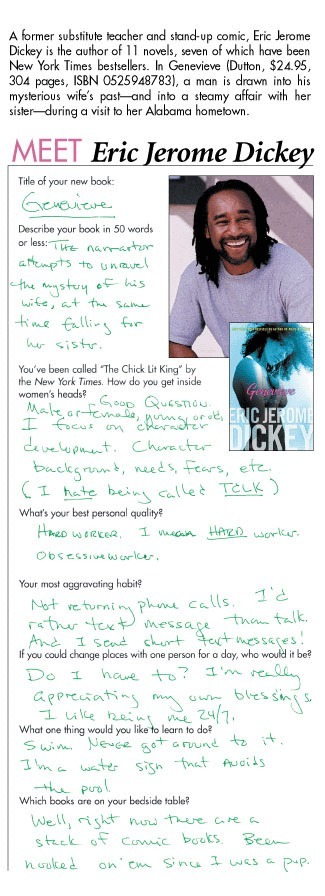 A former substitute teacher and stand-up comic, Eric Jerome
Dickey is the author of 11 novels, seven of which have been
New York Times bestsellers. In Genevieve (Dutton, $24.95,
304 pages, ISBN 0525948783), a man is drawn into his
mysterious wife's past—and into a steamy affair with her
sister—during a visit to her Alabama hometown.
MEET Eric Jerome Dickey
Title of your new book:
Genevieve
Describe your book in 50 words
or less: The narrator
attempts to unravel
the mystery of his
wife, at the same
time falling for
her sister.
Genevieve
ERIC JEROME
DICKEY
You've been called "The Chick Lit King" by
the New York Times. How do you get inside
women's heads? Good Question.
Male or female, young or old,
I focus on character
development. Character
background, needs, fears, etc.
(I hate being called TCLK)
What's your best personal quality?
Hard worker. I mean HARD worker.
Obsessive worker.
Your most aggravating habit?
Not returning phone calls. I'd
rather text message than talk.
And I send short text messages!
If you could change places with one person for a day, who would it be?
Do I have to? I'm really
appreciating my own blessings.
I like being me 24/7.
What one thing would you like to learn to do?
Swim. Never got around to it.
I'm a water sign that avoids
the pool.
Which books are on your bedside table?
Well, right now there are a
stack of comic books. Been
hooked on 'em since I was a pup.